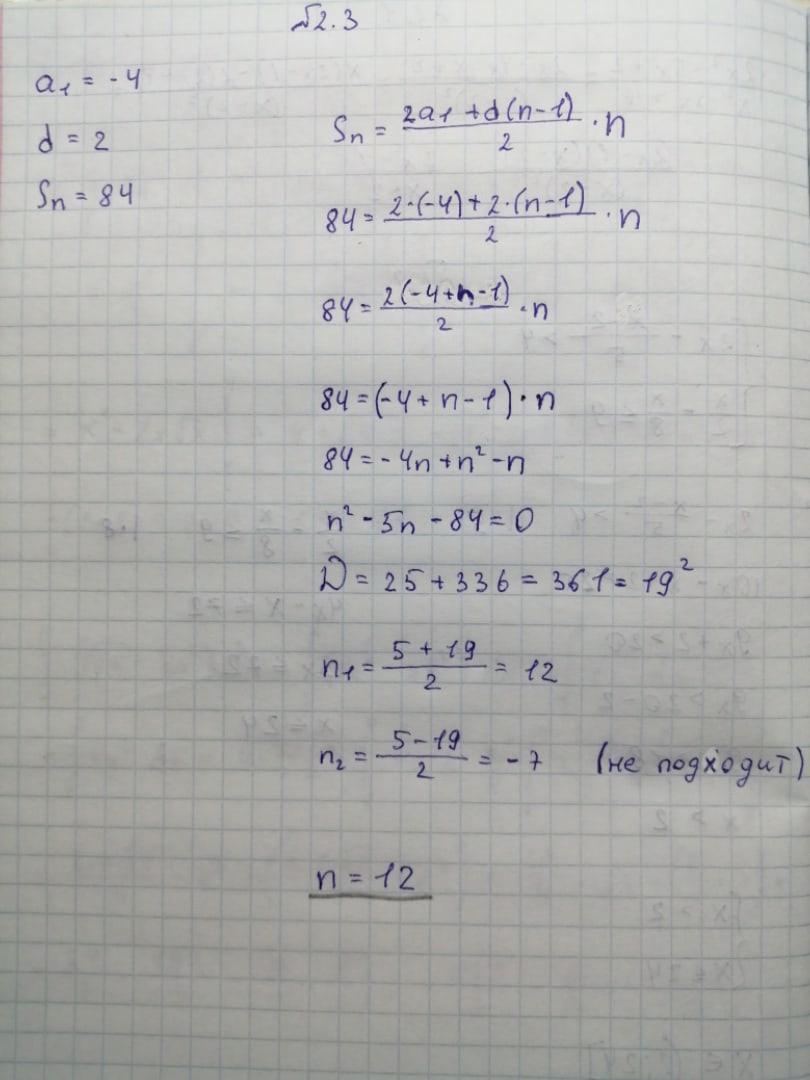 №2.3
a₁ = -4
d = 2
Sₙ = 84
Sₙ = (2a₁ + d(n-1))/2 · n
84 = (2·(-4) + 2·(n-1))/2 · n
84 = (2(-4+n-1))/2 · n
84 = (-4 + n - 1) · n
84 = -4n + n² - n
n² - 5n - 84 = 0
D = 25 + 336 = 361 = 19²
n₁ = (5 + 19)/2 = 12
n₂ = (5 - 19)/2 = -7 (не подходит)
n = 12